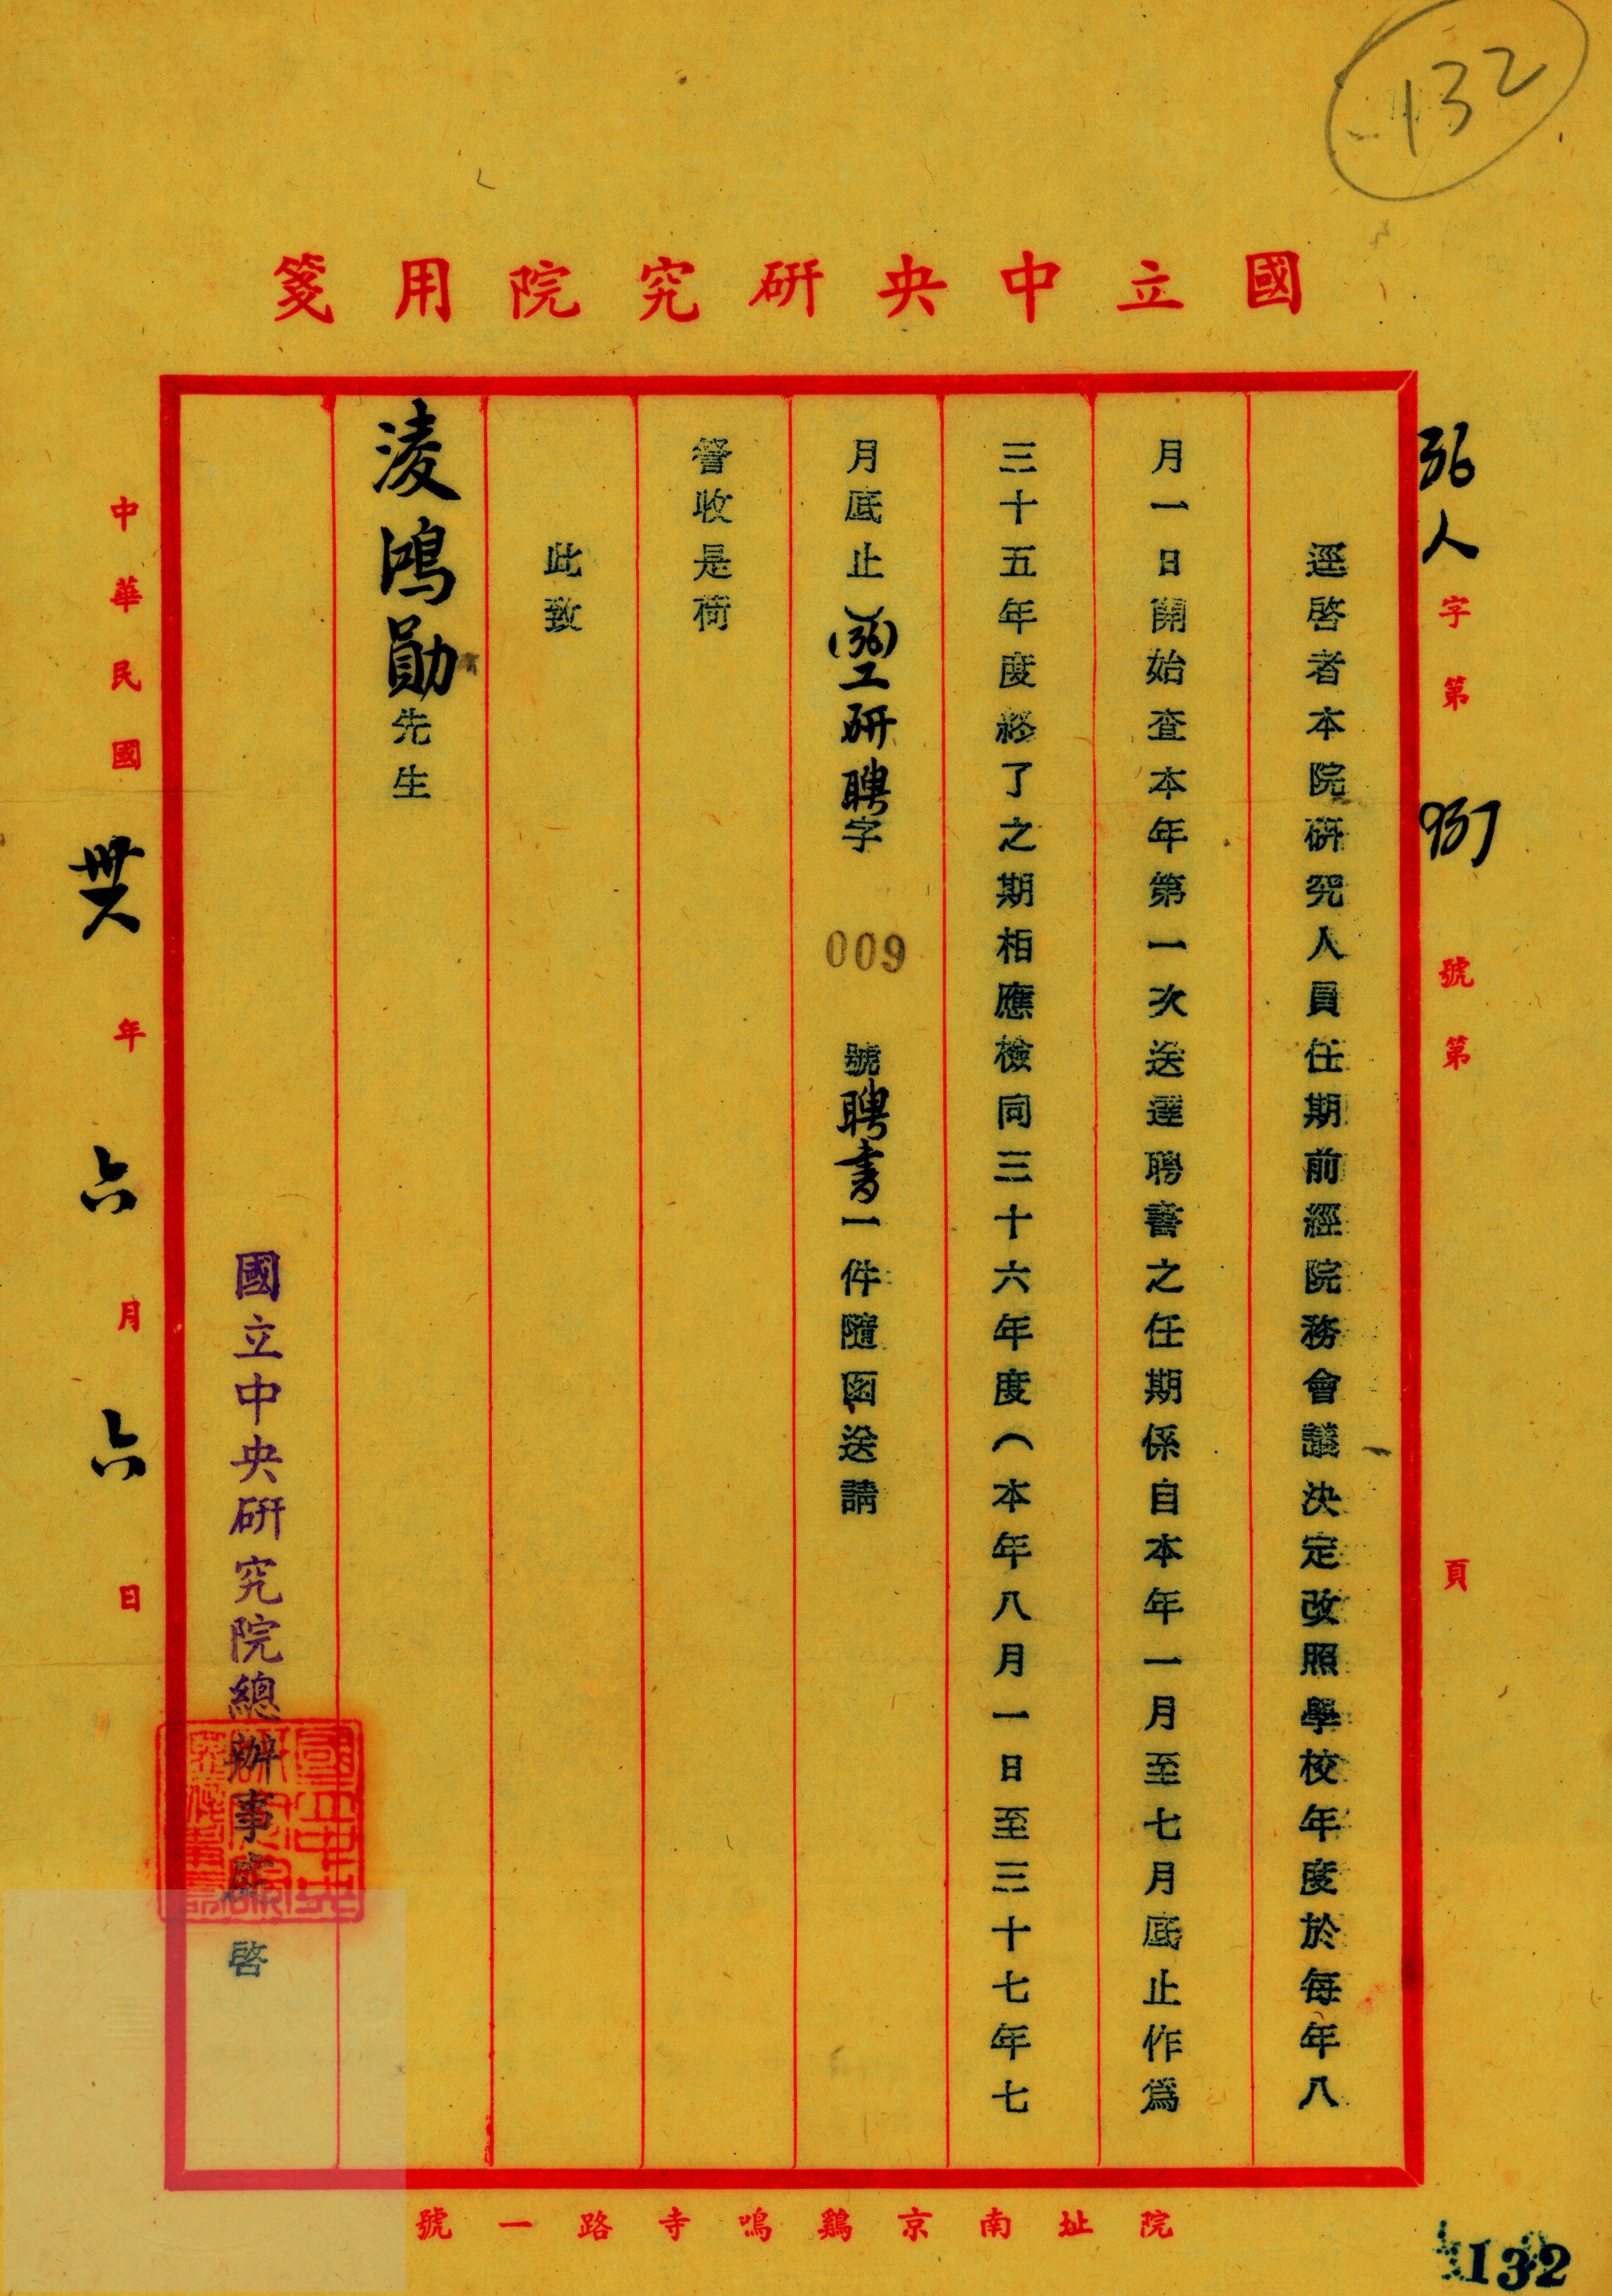 132
國立中央研究院用箋
36人字第937號第 頁
逕啓者本院研究人員任期前經院務會議決定改照學校年度於每年八
月一日開始查本年第一次送達聘書之任期係自本年一月至七月底止作爲
三十五年度終了之期相應檢同三十六年度（本年八月一日至三十七年七
月底止）(36)工研聘字 009 號聘書一件隨函送請
詧收是荷
此致
淩鴻勛先生
國立中央研究院總辦事處 啓
中華民國卅六年六月六日
院址南京鷄鳴寺路一號
132